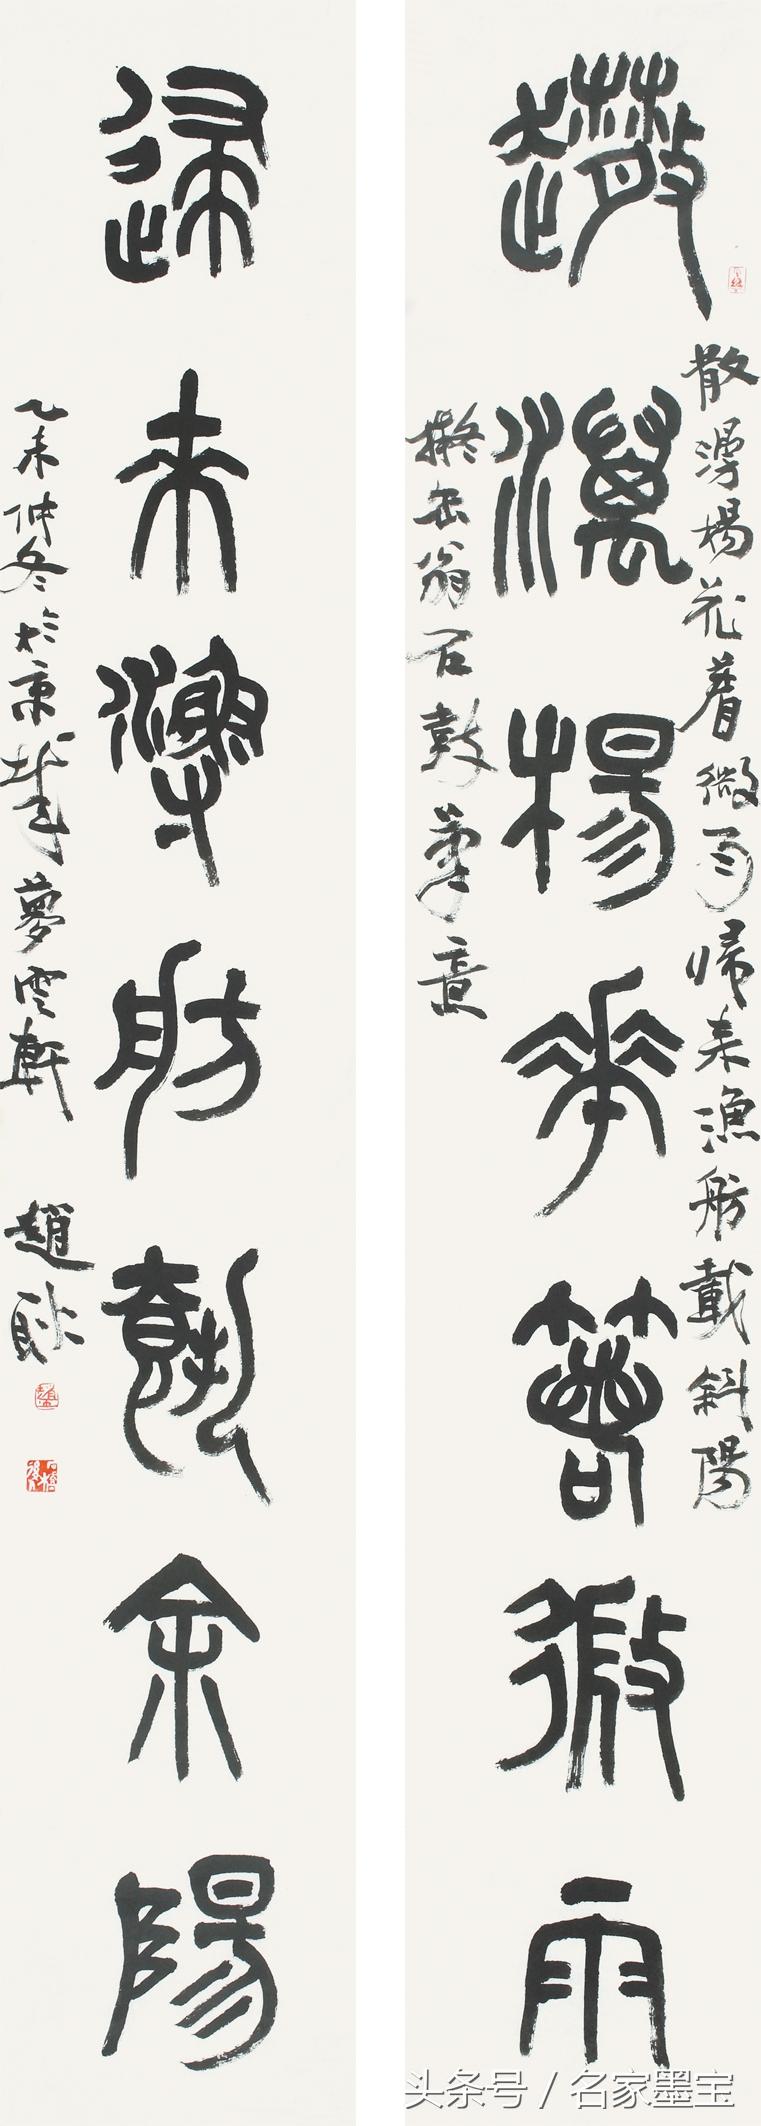 散漫楊花著微雨
散漫楊花著微雨歸來漁舫載斜陽
擬缶翁石鼓筆意
歸來漁舫載余陽
乙未仲冬於京夢雲軒
趙耿
头条号 / 名家墨宝